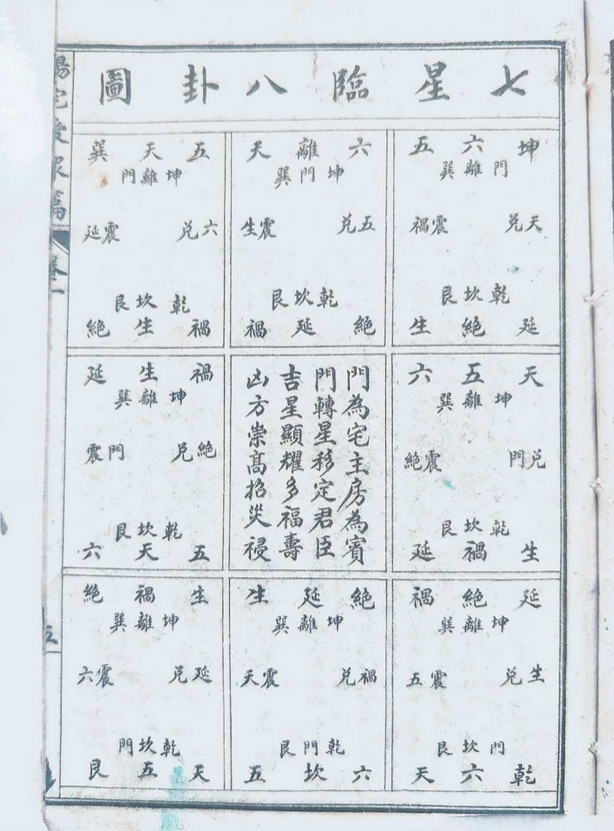 七星臨八卦圖
坤六五
門離巽
天兌 震禍
乾坎艮
延絕生
六離天
坤門巽
五兌 震生
乾坎艮
絕延禍
五天巽
坤離門
六兌 震延
乾坎艮
禍生絕
天五六
坤離巽
兌門 震絕
乾坎艮
生禍延
門為宅主房為賓
門轉星移定君臣
吉星顯耀多福壽
凶方崇高招災祲
禍生延
坤離巽
絕兌 門震
乾坎艮
五天六
延絕禍
坤離巽
生兌 震五
門坎艮
乾六天
絕延生
坤離巽
禍兌 震天
乾門艮
六坎五
生禍絕
坤離巽
延兌 震六
乾坎門
天五艮
陽宅愛眾篇
卷一
五